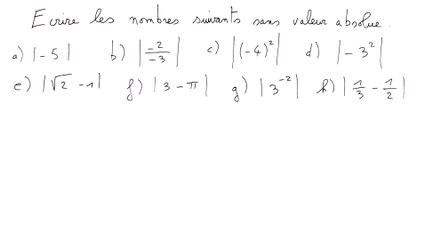 Ecrire les nombres suivants sans valeur absolue.
a) |-5| b) |\frac{-2}{-3}| c) |(-4)²| d) |-3²|
e) |√2 - 1| f) |3 - π| g) |3⁻²| h) |\frac{1}{3} - \frac{1}{2}|